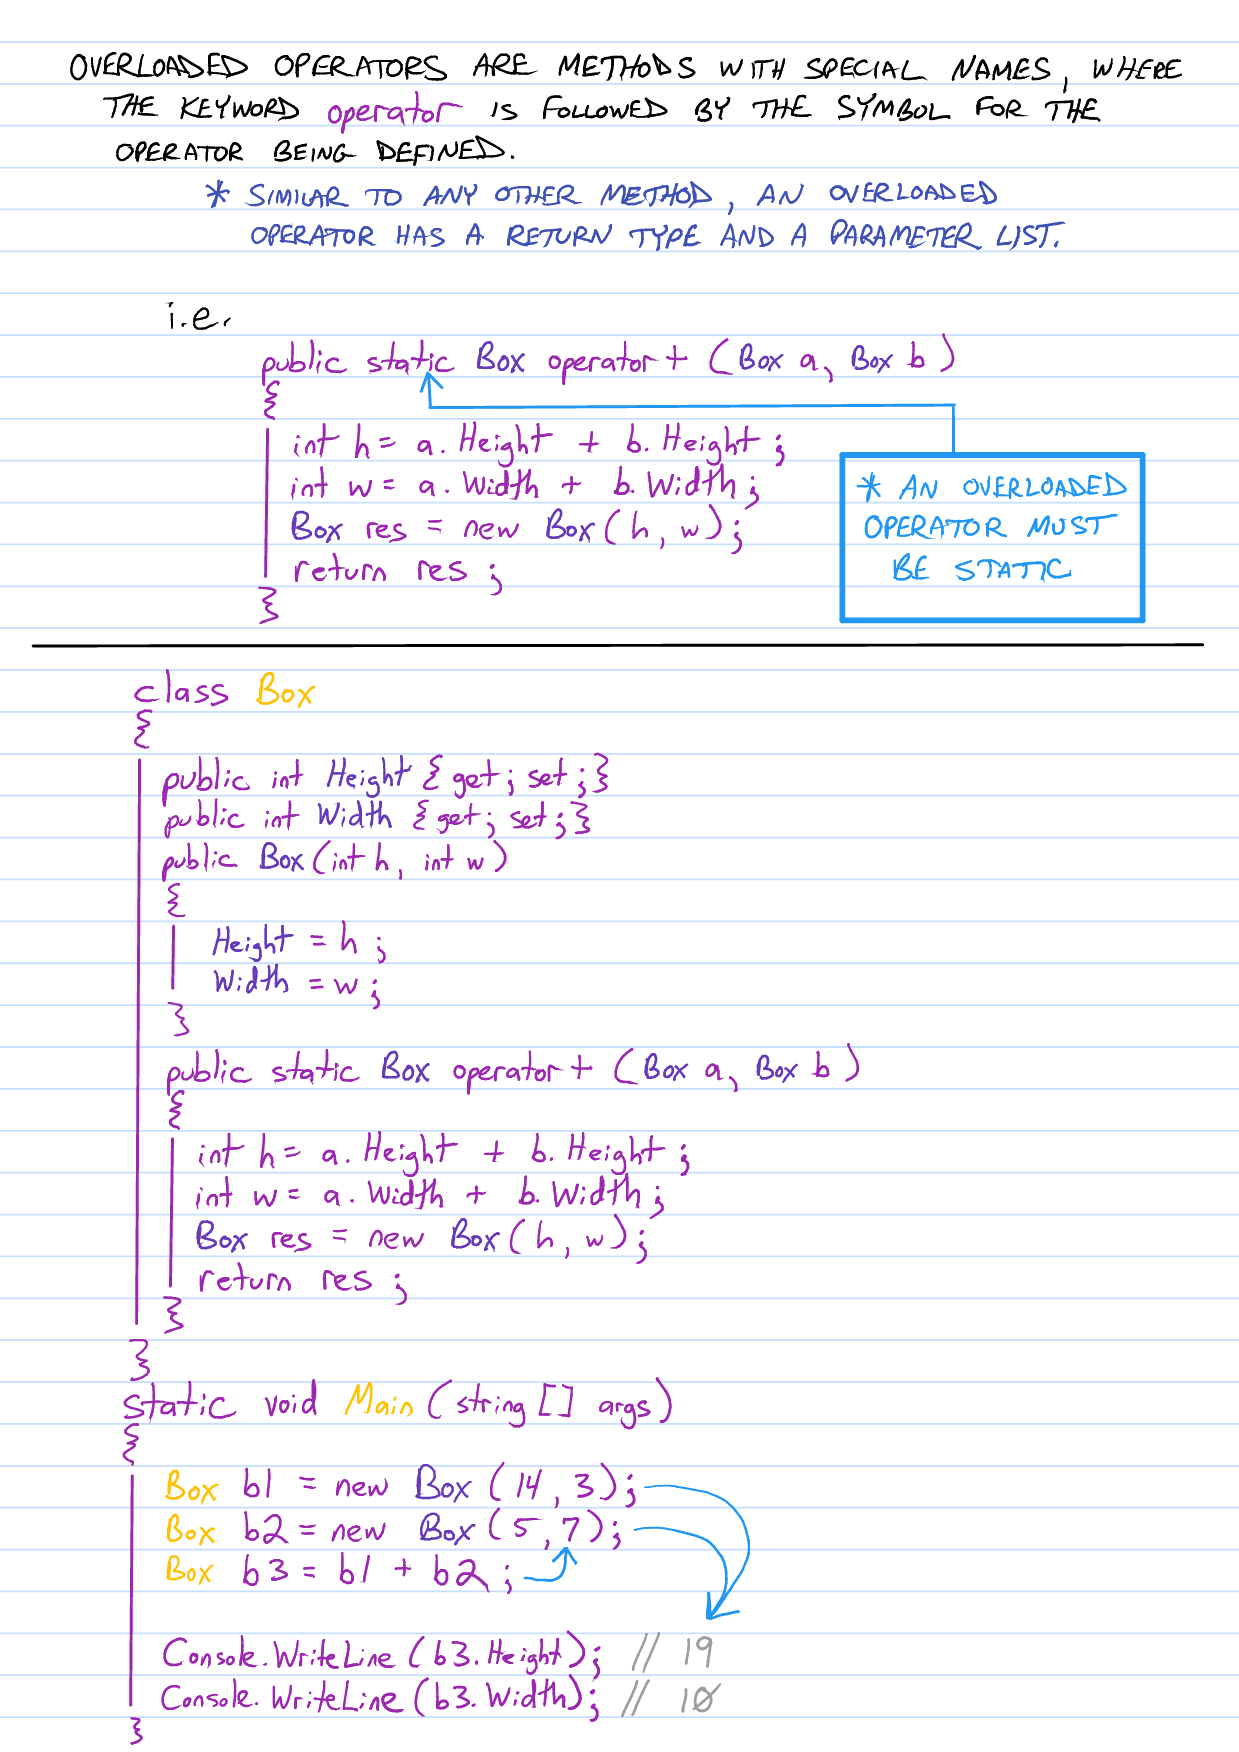 OVERLOADED OPERATORS ARE METHODS WITH SPECIAL NAMES, WHERE
THE KEYWORD operator IS FOLLOWED BY THE SYMBOL FOR THE
OPERATOR BEING DEFINED.
* SIMILAR TO ANY OTHER METHOD, AN OVERLOADED
OPERATOR HAS A RETURN TYPE AND A PARAMETER LIST.
i.e.
public static Box operator+ (Box a, Box b)
{
int h = a.Height + b.Height;
int w = a.Width + b.Width;
Box res = new Box(h, w);
return res;
}
* AN OVERLOADED
OPERATOR MUST
BE STATIC
class Box
{
public int Height { get; set; }
public int Width { get; set; }
public Box(int h, int w)
{
Height = h;
Width = w;
}
public static Box operator+ (Box a, Box b)
{
int h = a.Height + b.Height;
int w = a.Width + b.Width;
Box res = new Box(h, w);
return res;
}
}
static void Main(string[] args)
{
Box b1 = new Box(14, 3);
Box b2 = new Box(5, 7);
Box b3 = b1 + b2;
Console.WriteLine(b3.Height); // 19
Console.WriteLine(b3.Width); // 10
}